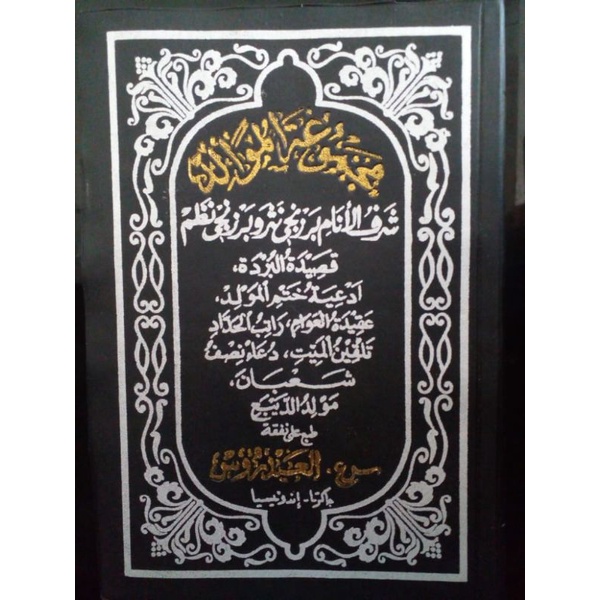 مجموعة الموالد
شرف الأنام، برزنجي نثر و برزنجي نظم
قصيدة البردة،
ادعية ختم المولد،
عقيدة العوام، راتب الحداد
تلقين الميت، دعاء نصف
شعبان،
مولد الديبع
طبع على نفقة
س.ع. العيدروس
جاكرتا - إندونيسيا